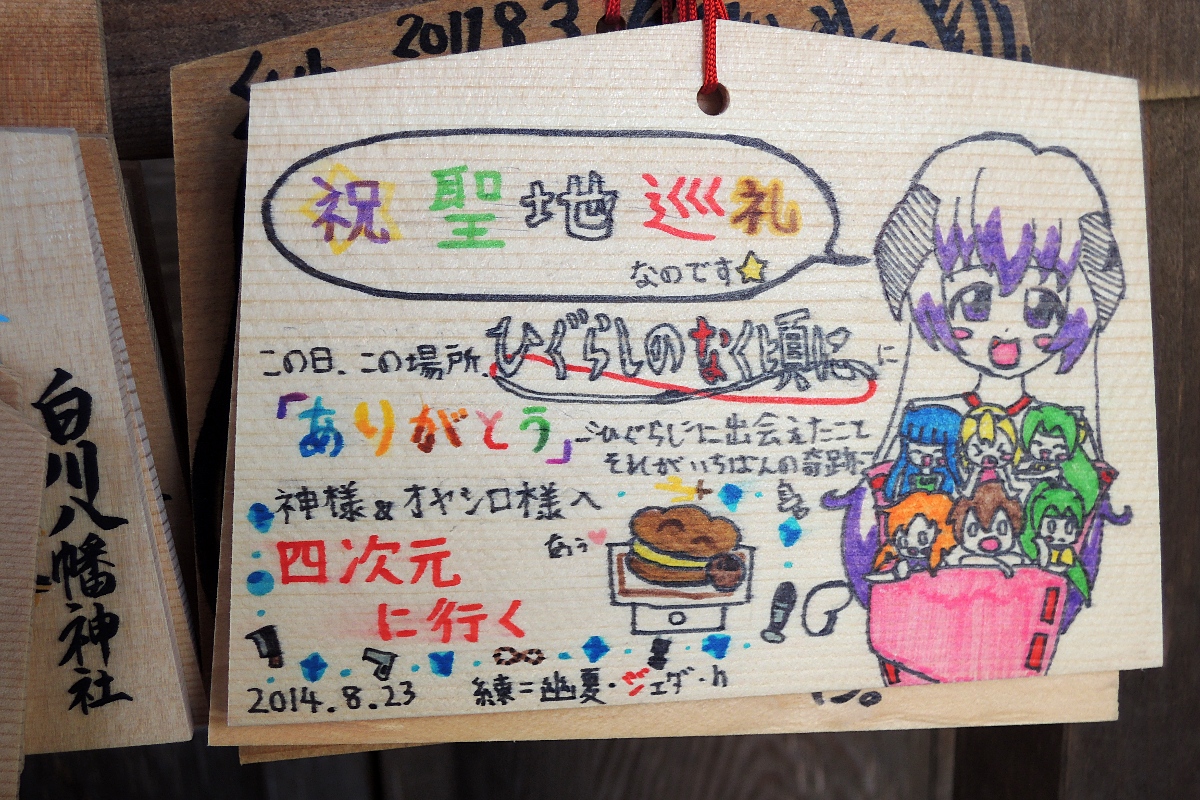 2011.8.3
祝 聖地巡礼
なのです☆
この日、この場所、ひぐらしのなく頃に に
「ありがとう」
ひぐらしに出会えたこと
それがいちばんの奇跡
神様&オヤシロ様へ
あぅ
四次元
に行く
2014.8.23
白川八幡神社